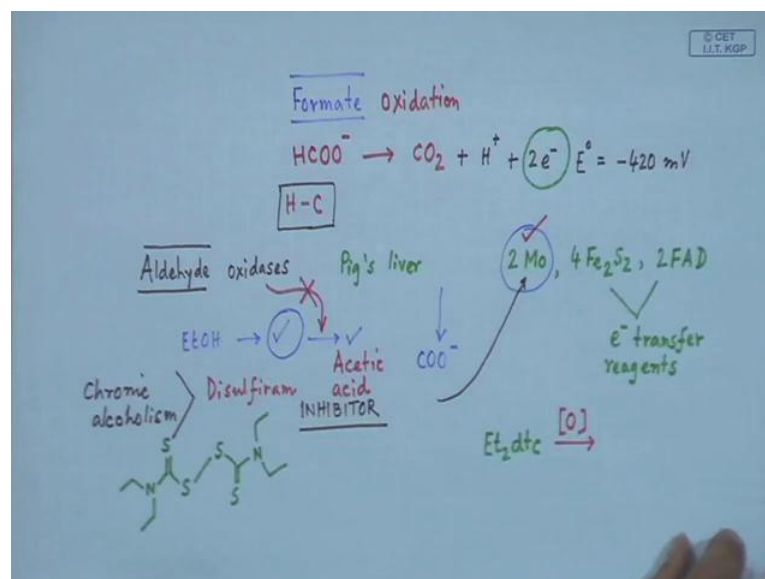 © CET
I.I.T. KGP
Formate oxidation
HCOO⁻ → CO₂ + H⁺ + 2e⁻ E° = -420 mV
H-C
Aldehyde oxidases Pig's liver 2 Mo, 4 Fe₂S₂, 2FAD
e⁻ transfer
reagents
EtOH → ✓ → ✓ COO⁻
Acetic
acid
INHIBITOR
Chronic
alcoholism
Disulfiram
Et₂dtc [O] →
S S N
N S S